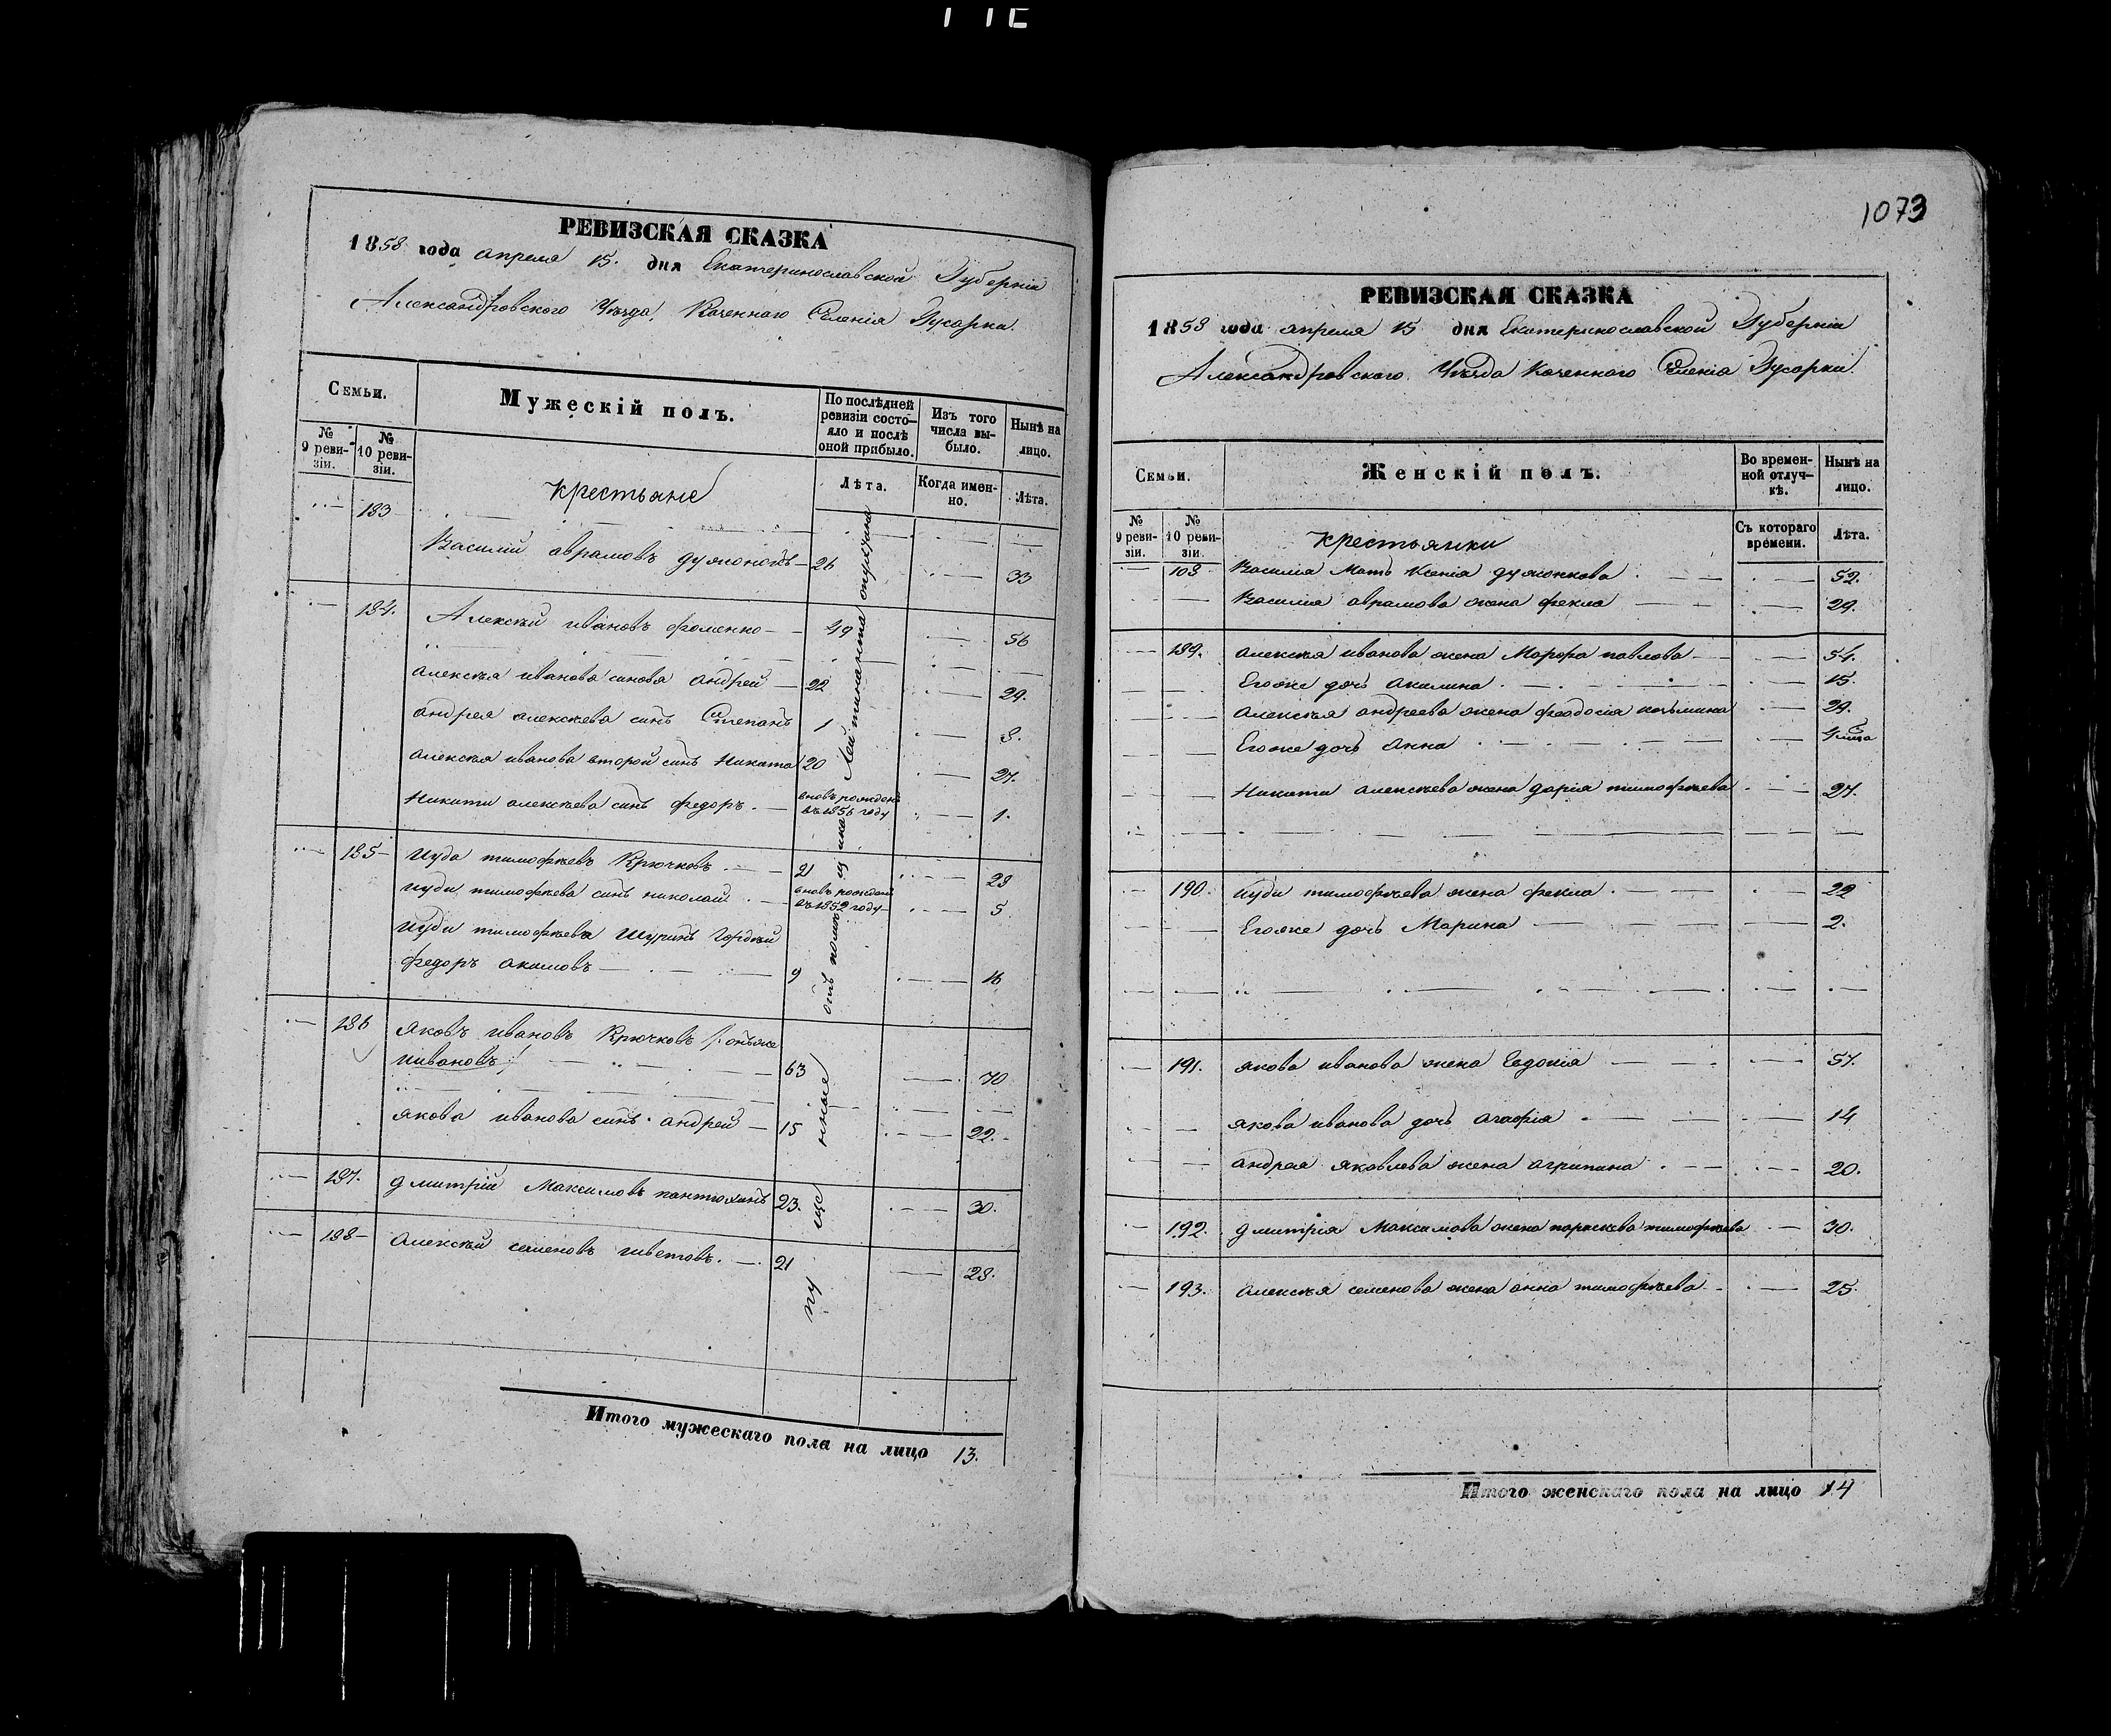 РЕВИЗСКАЯ СКАЗКА
1858 года апреля 15. дня Екатеринославской Губерніи
Александровского Уѣзда, Казенного Селенія Гусарки.
Семьи.
Мужескій полъ.
По послѣдней ревизіи состояло и послѣ оной прибыло.
Изъ того числа выбыло.
Нынѣ на лицо.
№ 9 ревизіи.
№ 10 ревизіи.
крестьяне
Лѣта.
Когда именно.
Лѣта.
183
Василий аврамовъ — 26 — 33
184. Алексѣй ивановъ фоменко — 49 — 56
алексѣя иванова синовя андрей — 22 — 29.
андрея алексѣева синъ Степанъ 1 — 8.
алексѣя иванова второй синъ Никита 20 — 27.
Никити алексѣева синъ федоръ. — вновь рожденъ въ 1856 году — 1.
185 — Иуда тимофѣевъ Крючковъ. — 21 — 28
иуди тимофѣева синъ николай. — вновь рожденъ въ 1852 году — 5
Иуди тимофѣева Шуринъ Гордѣй
федоръ акимовъ — 9 — 16
186 Яковъ ивановъ Крючковъ /: онъже
ивановъ :/ — 63 — 70
якова иванова синъ андрей — 15 — 22.
187. дмитрій Максимовъ 23. — 30.
188 — алексѣй семеновъ 21 — 28.
отъ помѣщика отпущенные
Итого мужескаго пола на лицо 13.
1073
РЕВИЗСКАЯ СКАЗКА
1858 года апреля 15 дня Екатеринославской Губерніи
Александровского Уѣзда Казенного Селенія Гусарки.
Семьи.
Женскій полъ.
Во временной отлучкѣ.
Нынѣ на лицо.
№ 9 ревизіи.
№ 10 ревизіи
крестьянки
Съ котораго времени.
Лѣта.
188 Василія Мать Ксенія — 52.
Василія аврамова жена фекла — 29.
189. алексѣя иванова жена Марфа павлова — 54.
Егоже дочь акилина — 15.
алексѣя андреева жена феодосія козьмина — 29.
Егоже дочь анна —
Никити алексѣева жена дарія тимофѣева — 27.
190. иуди тимофѣева жена фекла — 22
Егоже дочь Марина — 2.
191. якова иванова жена Евдокія — 57.
якова иванова дочь агафія — 14
андрея яковлева жена агрипина — 20.
192. дмитрія Максимова жена параскева тимофѣева — 30.
193. алексѣя семенова жена анна тимофѣева — 25.
Итого женскаго пола на лицо 14